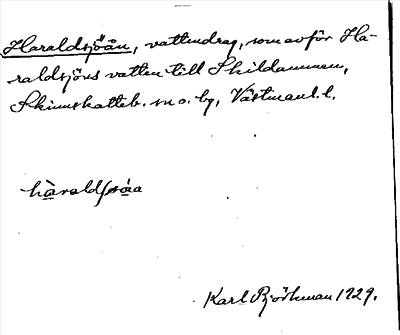 Haraldsjöån, vattendrag, som avför Ha-
raldsjöns vatten till Skildammen,
Skinnskatteb. sn o. bg, Västmanl. l.
hàraldʃøáa
Karl Björkman 1929.